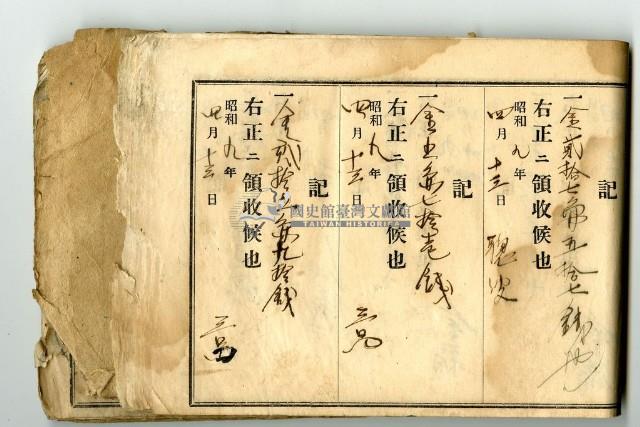 記
一金貳拾七円五拾七錢也
右正ニ領收候也
昭和九年
四月十三日
記
一金五円七拾壱錢
右正ニ領收候也
昭和九年
四月十三日
記
一金貳拾三円九拾錢
右正ニ領收候也
昭和九年
四月十三日
國史館臺灣文獻館
TAIWAN HISTORICA